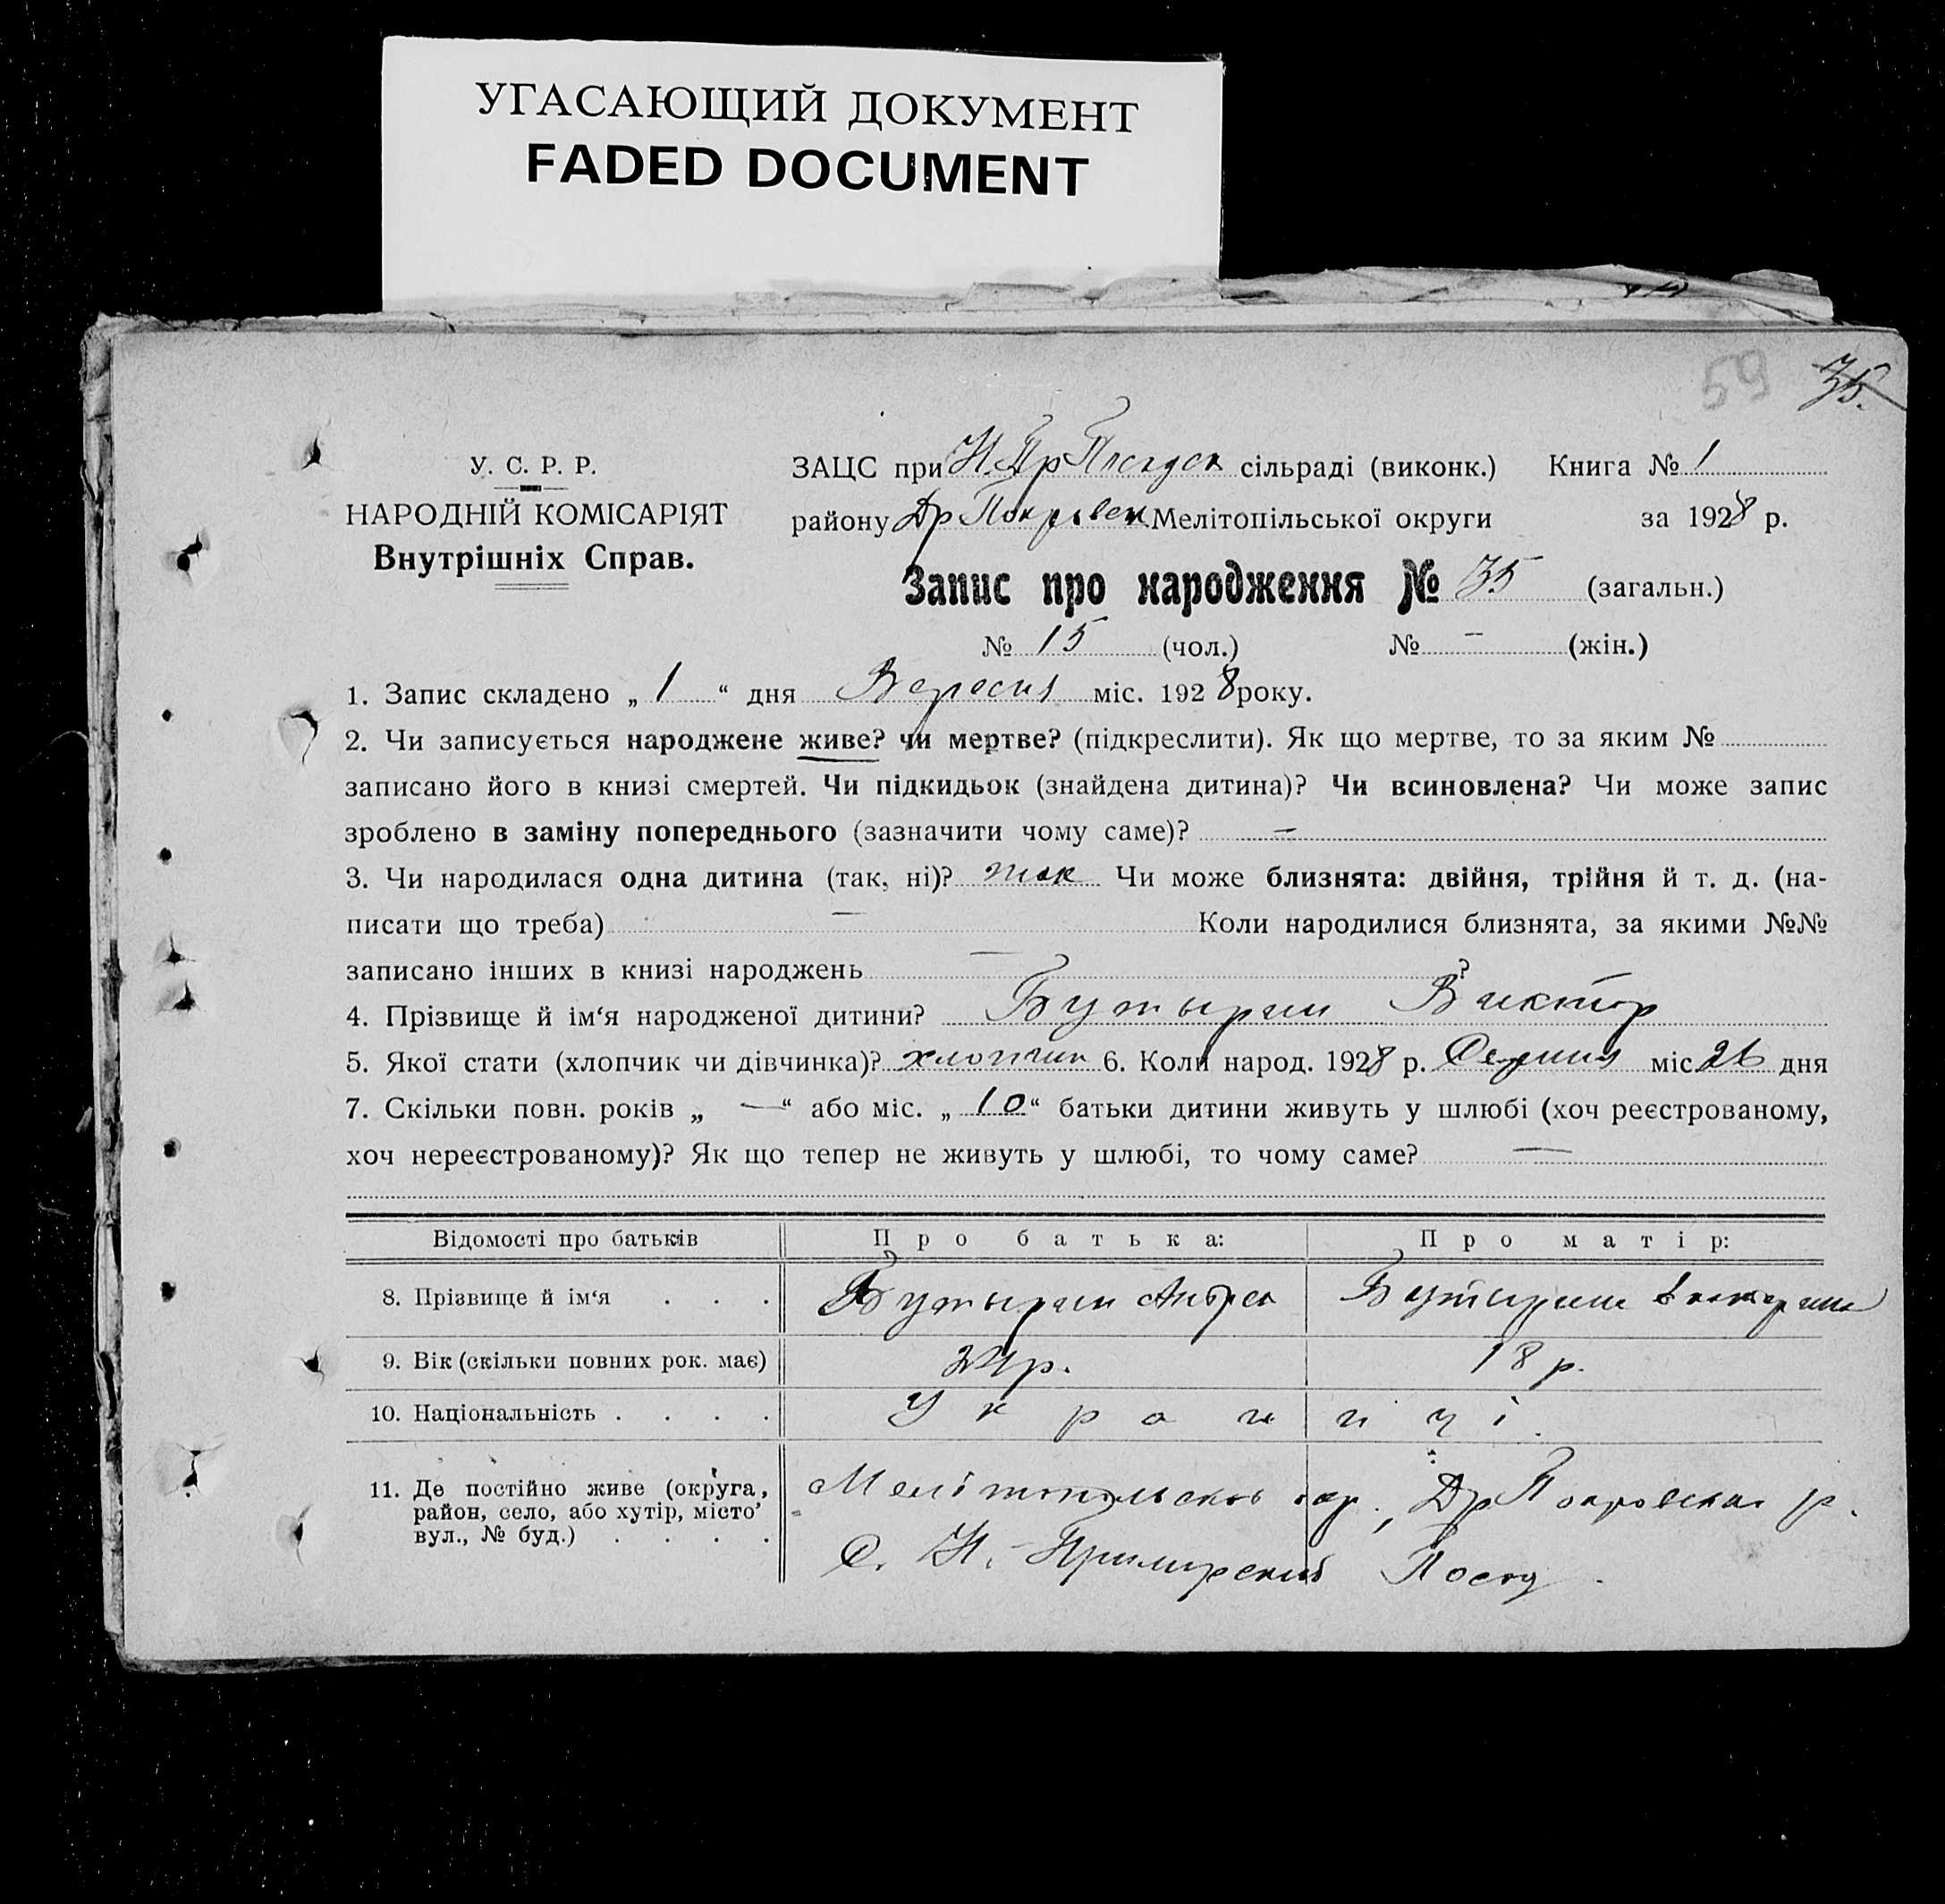 УГАСАЮЩИЙ ДОКУМЕНТ
FADED DOCUMENT
59 35.
У. С. Р. Р.
НАРОДНІЙ КОМІСАРІЯТ
Внутрішніх Справ.
ЗАЦС при Н. Пр Посадск сільраді (виконк.) Книга № 1
району Др Покровск Мелітопільської округи за 1928 р.
Запис про народження № 35 (загальн.)
№ 15 (чол.) № – (жін.)
1. Запис складено „ 1 “ дня Вересня міс. 1928 року.
2. Чи записується народжене живе? чи мертве? (підкреслити). Як що мертве, то за яким №
записано його в книзі смертей. Чи підкидьок (знайдена дитина)? Чи всиновлена? Чи може запис
зроблено в заміну попереднього (зазначити чому саме)? —
3. Чи народилася одна дитина (так, ні)? так Чи може близнята: двійня, трійня й т. д. (на-
писати що треба) — Коли народилися близнята, за якими №№
записано інших в книзі народжень — ?
4. Прізвище й ім‘я народженої дитини? Бутырин Виктор
5. Якої стати (хлопчик чи дівчинка)? хлопчик 6. Коли народ. 1928 р. Серпня міс. 26 дня
7. Скільки повн. років „ — “ або міс. „ 10 “ батьки дитини живуть у шлюбі (хоч реєстрованому,
хоч нереєстрованому)? Як що тепер не живуть у шлюбі, то чому саме? —
Відомості про батьків Про батька: Про матір:
8. Прізвище й ім‘я . . . Бутырин Андрей Бутырина
9. Вік (скільки повних рок. має) 24 р. 18 р.
10. Національність . . . . Українці
11. Де постійно живе (округа, район, село, або хутір, місто, вул., № буд.) . . . . Мелітопольскої окр., Др Покровскаго р.
С. Н.- Посад.